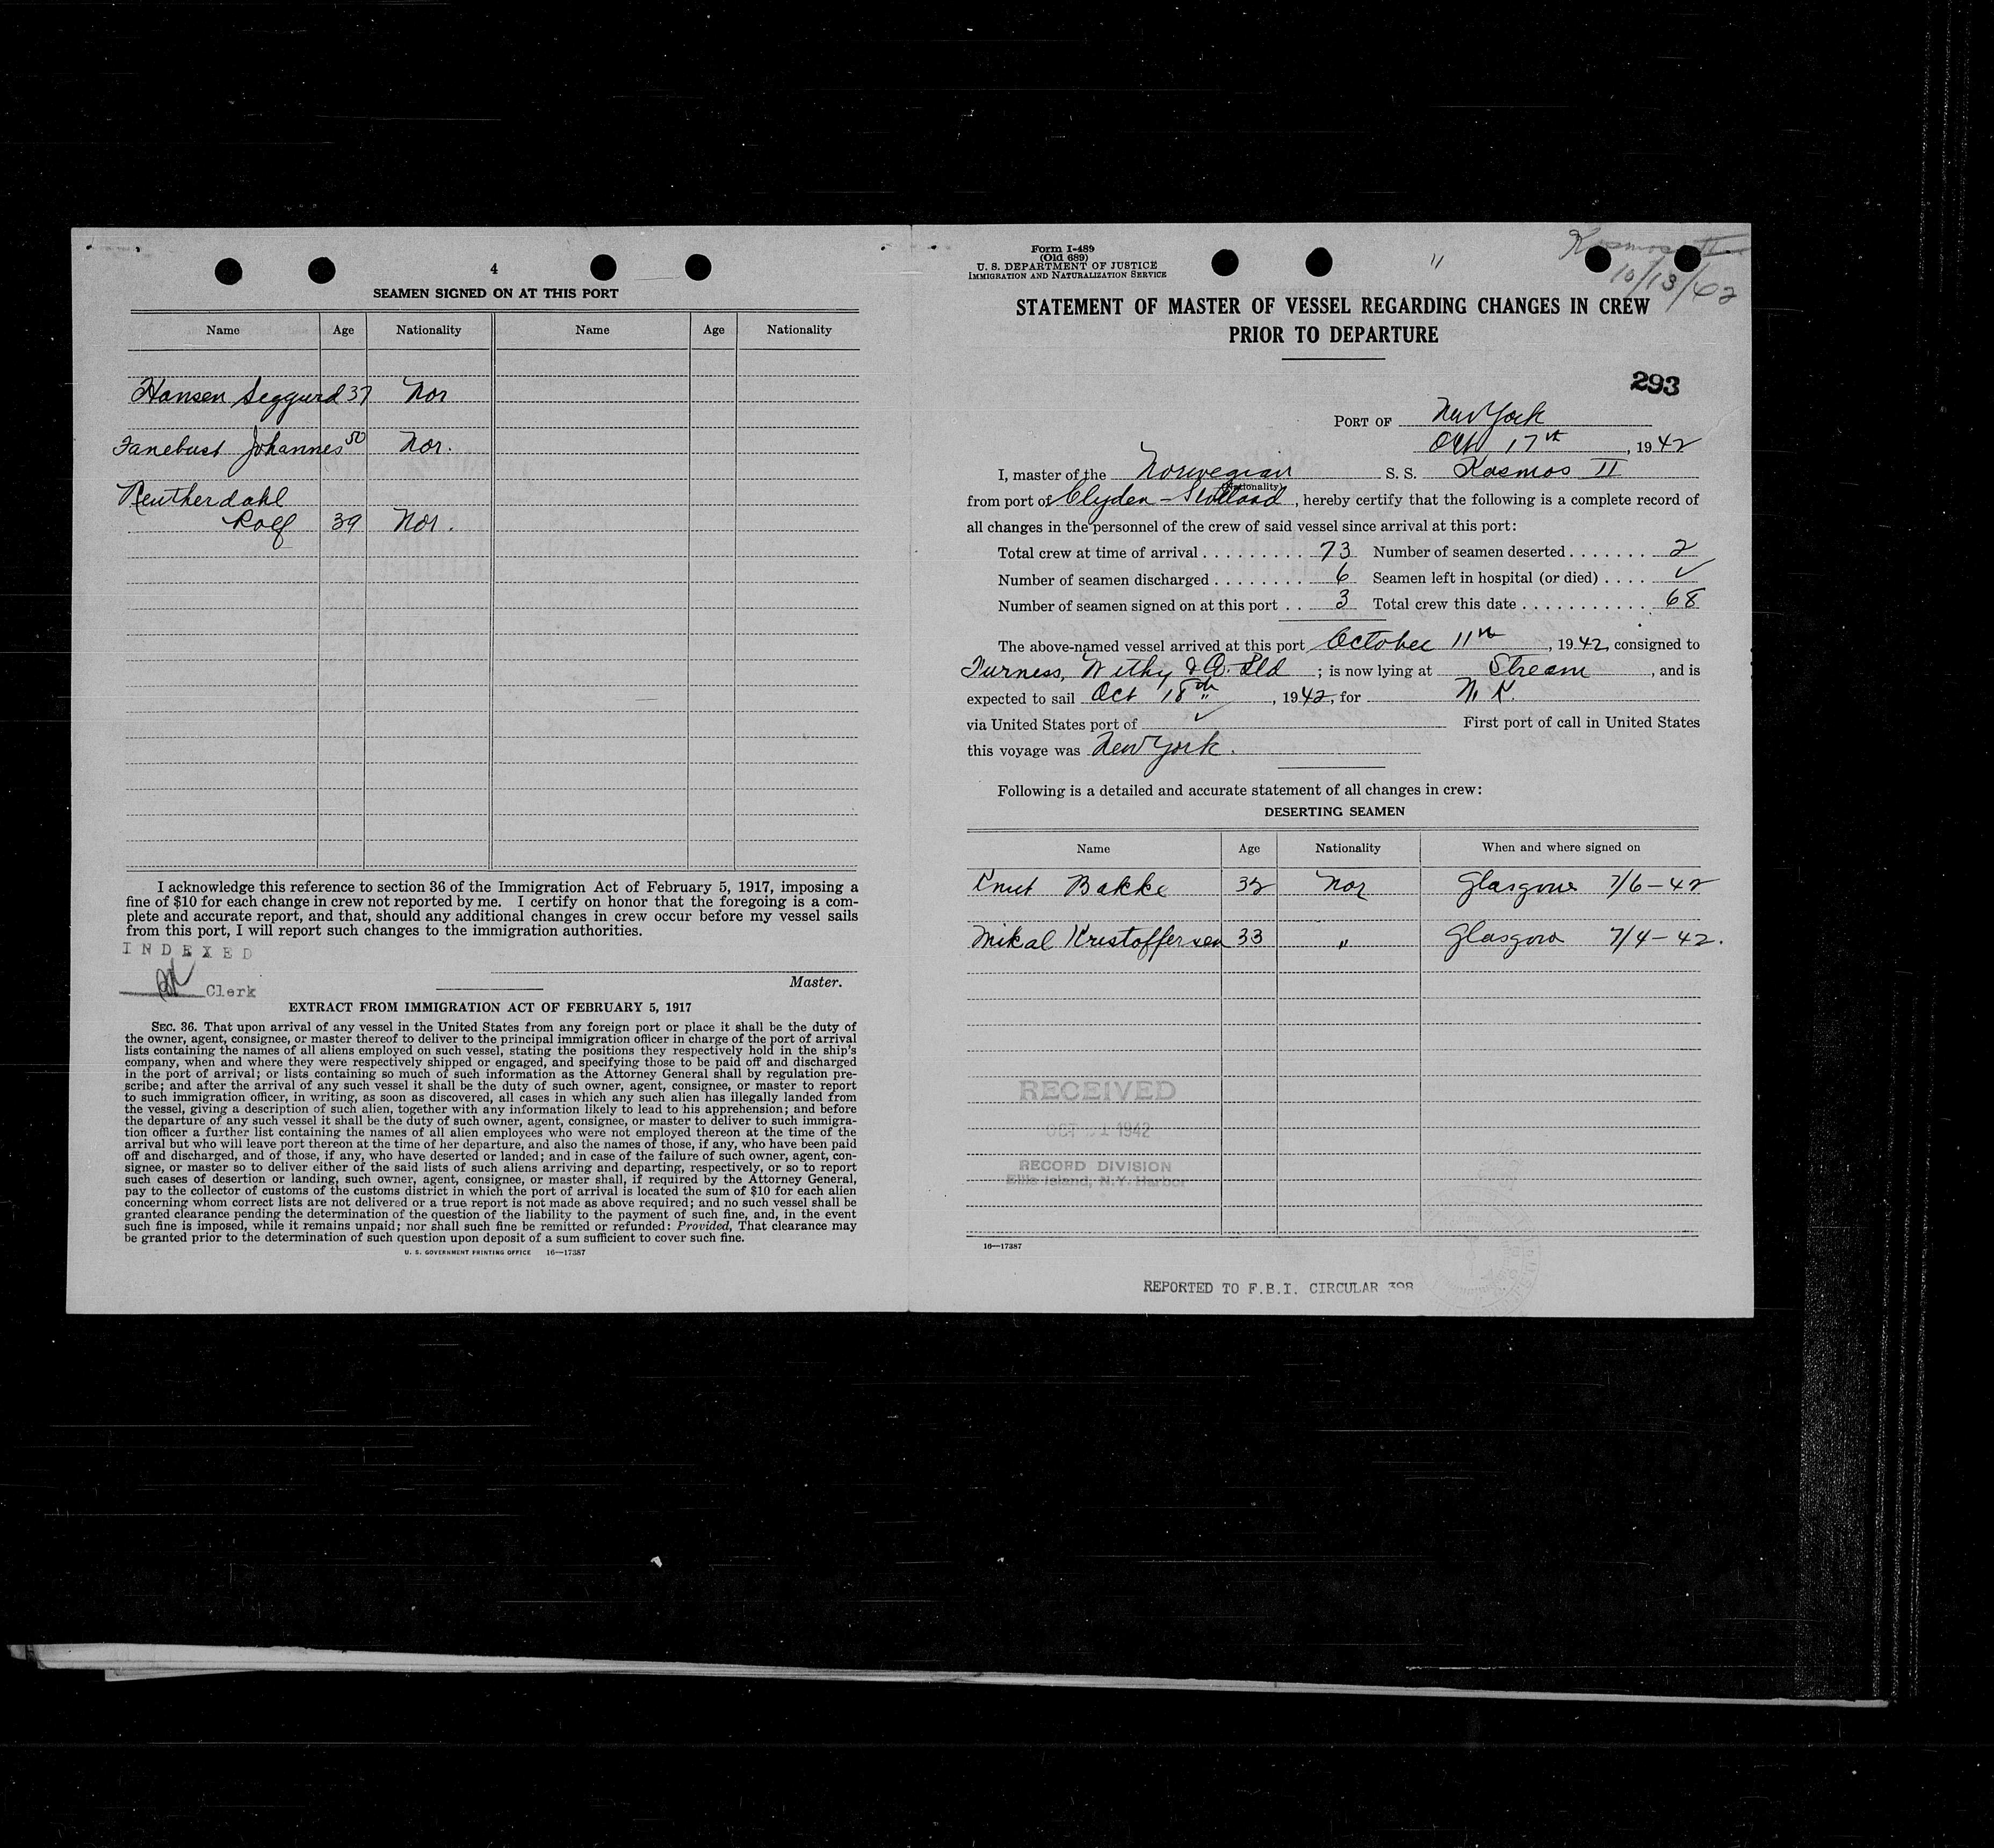 4
SEAMEN SIGNED ON AT THIS PORT
Name Age Nationality Name Age Nationality
Hansen Seggurd 37 Nor
Fanebust Johannes 50 Nor.
Reutherdahl
Rolf 39 Nor.
I acknowledge this reference to section 36 of the Immigration Act of February 5, 1917, imposing a
fine of $10 for each change in crew not reported by me. I certify on honor that the foregoing is a com-
plete and accurate report, and that, should any additional changes in crew occur before my vessel sails
from this port, I will report such changes to the immigration authorities.
INDEXED
Master.
Clerk
EXTRACT FROM IMMIGRATION ACT OF FEBRUARY 5, 1917
SEC. 36. That upon arrival of any vessel in the United States from any foreign port or place it shall be the duty of
the owner, agent, consignee, or master thereof to deliver to the principal immigration officer in charge of the port of arrival
lists containing the names of all aliens employed on such vessel, stating the positions they respectively hold in the ship's
company, when and where they were respectively shipped or engaged, and specifying those to be paid off and discharged
in the port of arrival; or lists containing so much of such information as the Attorney General shall by regulation pre-
scribe; and after the arrival of any such vessel it shall be the duty of such owner, agent, consignee, or master to report
to such immigration officer, in writing, as soon as discovered, all cases in which any such alien has illegally landed from
the vessel, giving a description of such alien, together with any information likely to lead to his apprehension; and before
the departure of any such vessel it shall be the duty of such owner, agent, consignee, or master to deliver to such immigra-
tion officer a further list containing the names of all alien employees who were not employed thereon at the time of the
arrival but who will leave port thereon at the time of her departure, and also the names of those, if any, who have been paid
off and discharged, and of those, if any, who have deserted or landed; and in case of the failure of such owner, agent, con-
signee, or master so to deliver either of the said lists of such aliens arriving and departing, respectively, or so to report
such cases of desertion or landing, such owner, agent, consignee, or master shall, if required by the Attorney General,
pay to the collector of customs of the customs district in which the port of arrival is located the sum of $10 for each alien
concerning whom correct lists are not delivered or a true report is not made as above required; and no such vessel shall be
granted clearance pending the determination of the question of the liability to the payment of such fine, and, in the event
such fine is imposed, while it remains unpaid; nor shall such fine be remitted or refunded: Provided, That clearance may
be granted prior to the determination of such question upon deposit of a sum sufficient to cover such fine.
U. S. GOVERNMENT PRINTING OFFICE 16—17387
Form I-489
(Old 689)
U. S. DEPARTMENT OF JUSTICE
IMMIGRATION AND NATURALIZATION SERVICE
"
Kosmos II
10/13/42
STATEMENT OF MASTER OF VESSEL REGARDING CHANGES IN CREW
PRIOR TO DEPARTURE
293
PORT OF New York
Oct 17th, 1942
I, master of the Norwegian S. S. Kosmos II
(Nationality)
from port of Clyden - Scotland, hereby certify that the following is a complete record of
all changes in the personnel of the crew of said vessel since arrival at this port:
Total crew at time of arrival . . . . . . . . . . 73 Number of seamen deserted . . . . . . . 2
Number of seamen discharged . . . . . . . . 6 Seamen left in hospital (or died) . . . . ✓
Number of seamen signed on at this port . . 3 Total crew this date . . . . . . . . . . . . 68
The above-named vessel arrived at this port October 11th, 1942, consigned to
Furness, Withy & Co. Ltd; is now lying at Stream, and is
expected to sail Oct 18th, 1942, for N. K.
via United States port of ✓ First port of call in United States
this voyage was New York.
Following is a detailed and accurate statement of all changes in crew:
DESERTING SEAMEN
Name Age Nationality When and where signed on
Knut Bakke 32 Nor Glasgow 7/6-42
Mikal Kristoffersen 33 " Glasgow 7/4-42.
RECEIVED
1942
RECORD DIVISION
Ellis Island, N.Y. Harbor
16—17387
REPORTED TO F.B.I. CIRCULAR 398